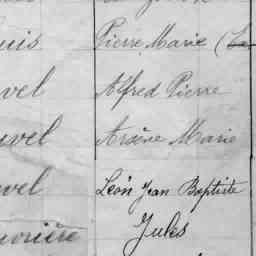 uis Pierre Marie (
vel Alfred Pierre
uvel Arsène Marie
vel Léon Jean Baptiste
uvrière Jules